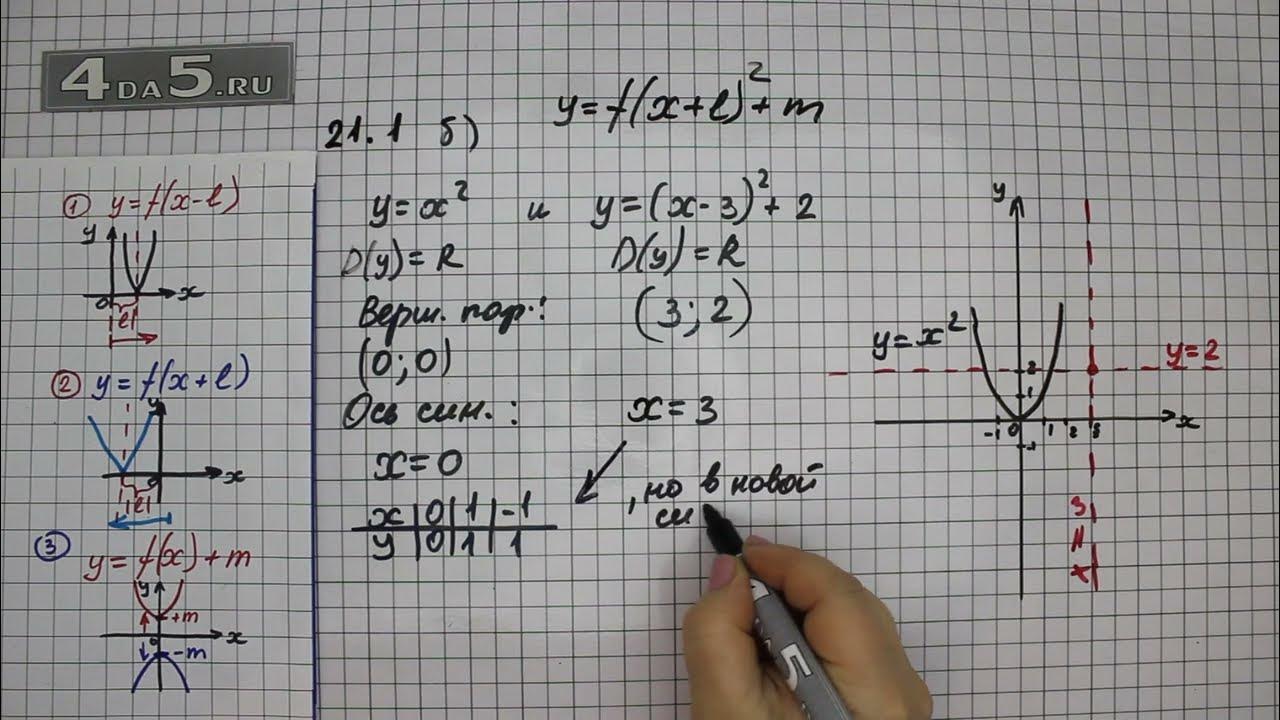 4DA5.RU
y=f(x+l)²+m
21.1 б)
① y=f(x-l)
y
0
x
|l|
② y=f(x+l)
y
0
x
|l|
③ y=f(x)+m
y
+m
0
x
-m
y=x² и y=(x-3)²+2
D(y)=R D(y)=R
Верш. пар.: (3;2)
(0;0)
Ось сим.: x=3
x=0
x|0|1|-1
y|0|1|1
, но в новой
си
y
y=x²
y=2
2
1
-1 0 1 2 3
x
-1
x=3
5